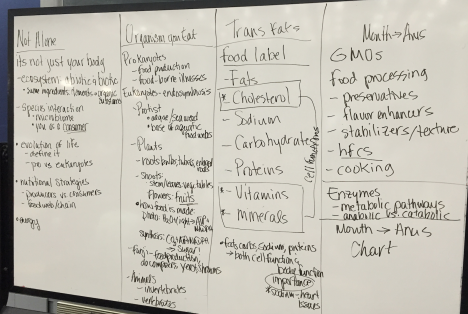 Not Alone
its not just your body
- ecosystem abiotic & biotic
- Species interaction
- microbiome
- you as a consumer
- evolution of life
- define it
- pro vs eukaryotes
- nutritional strategies
- producers vs consumers
- food web/chain
- energy
Organisms you Eat
Prokaryotes
- food production
- food-borne illnesses
Eukaryotes - endosymbiosis
- Protist
- algae/seaweed
- base of aquatic food webs
- Plants
- roots: bulbs, tubers,
- Shoots:
stem/leaves: veg. tables
flowers: fruits
- how food is made
synthesis:
→ sugar
- Fungi - food production,
decomposers, yeast, shrooms
- Animals
- invertebrates
- vertebrates
Trans Fats
food label
- Fats
* Cholesterol
- Sodium
- Carbohydrates
- Proteins
* - Vitamins
* - Minerals
cell functions
* fats, carbs, sodium, proteins
→ both cell function &
body function
importance
* sodium - heart
tissues
Mouth → Anus
GMOs
Food processing
- preservatives
- flavor enhancers
- stabilizers/texture
- hfcs
- cooking
Enzymes
- metabolic pathways
- anabolic vs. catabolic
Mouth → Anus
Chart